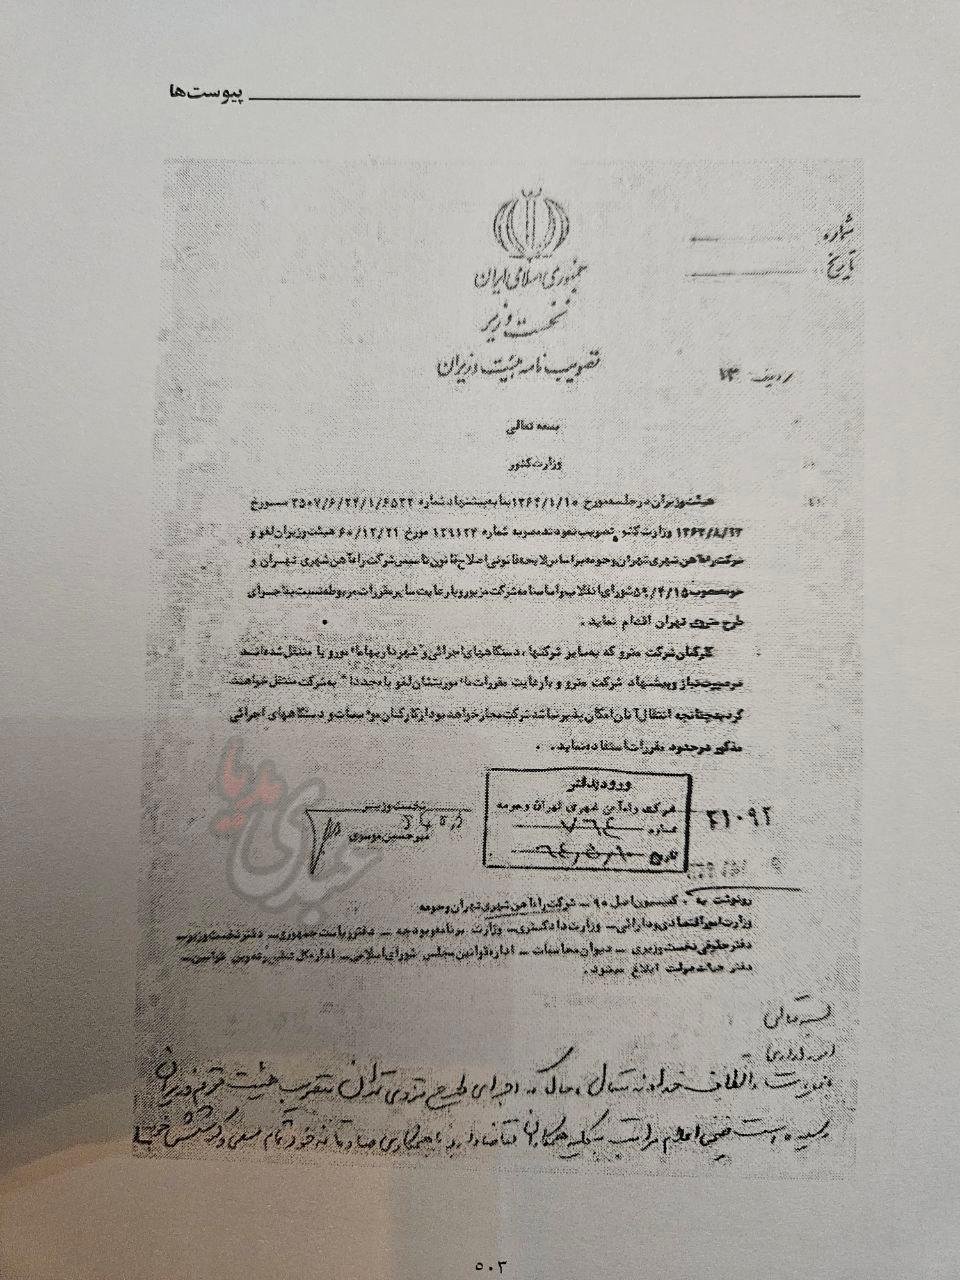 پیوست‌ها
شماره
تاریخ
جمهوری اسلامی ایران
نخست وزیر
تصویب نامه هیئت وزیران
ردیف ۱۳
بسمه تعالی
وزارت کشور
هیئت وزیران در جلسه مورخ ۱۳۶۴/۱/۱۰ بنا به پیشنهاد شماره ۳۵۰۷/۶/۳۴/۱/۶۵۳۲ مورخ
وزارت کشور تصویب نمودند مصوبه شماره ۱۲۹۱۲۴ مورخ ۶۰/۱۲/۲۱ هیئت وزیران لغو و
شرکت راه‌آهن شهری تهران و حومه بر اساس لایحه قانونی اصلاح قانون تاسیس شرکت راه‌آهن شهری تهران و
حومه مصوب ۵۹/۴/۱۵ شورای انقلاب و اساسنامه شرکت مزبور و با رعایت سایر مقررات مربوطه نسبت به اجرای
طرح متروی تهران اقدام نماید .
کارکنان شرکت مترو که به سایر شرکتها ، دستگاههای اجرائی و شهرداریها مامور و یا منتقل شده‌اند
در صورت نیاز و پیشنهاد شرکت مترو و با رعایت مقررات ماموریتشان لغو یا مجددا" به شرکت منتقل خواهند
گردید چنانچه انتقال آنان امکان پذیر نباشد شرکت مجاز خواهد بود از کارکنان موسسات و دستگاههای اجرائی
مذکور در حدود مقررات استفاده نماید .
ورود به دفتر
شرکت راه‌آهن شهری تهران و حومه
شماره ۷۶۴
تاریخ ۶۴/۵/۱۰
۴۱۰۹۲
نخست وزیر
میرحسین موسوی
عبدی مدیا
رونوشت به : کمیسیون اصل ۹۰ – شرکت راه‌آهن شهری تهران و حومه
وزارت امور اقتصادی و دارائی – وزارت دادگستری – وزارت برنامه و بودجه – دفتر ریاست جمهوری – دفتر نخست وزیر –
دفتر حقوقی نخست وزیری – دیوان محاسبات – اداره قوانین مجلس شورای اسلامی – اداره کل تنقیح و تدوین قوانین –
دفتر هیات دولت ابلاغ میشود .
بسمه تعالی
امور اداری
الطاف خداوند متعال ، حال که اجرای طرح متروی تهران بتصویب هیئت محترم وزیران
رسیده است ضمن اعلام مراتب به کلیه همکاران تقاضا دارد با همکاری صادقانه خود تمام سعی و کوشش خود
۵۰۳